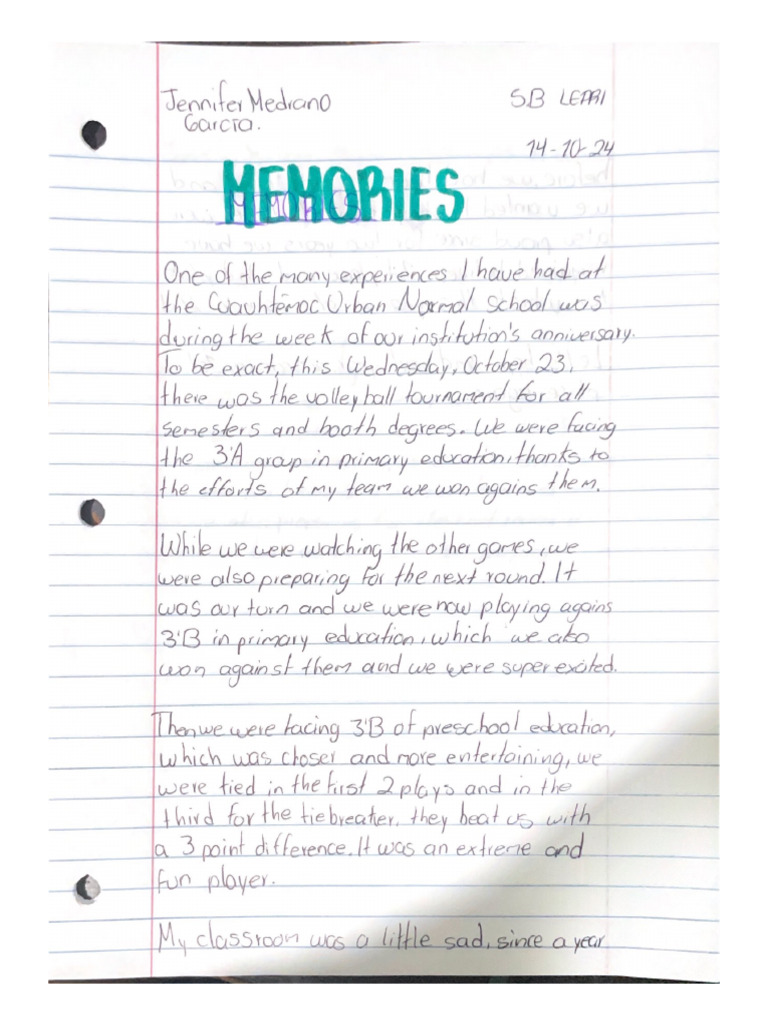 Jennifer Medrano
Garcia.
5.B LEPRI
14-10-24
MEMORIES
One of the many experiences I have had at
the Cuauhtémoc Urban Normal School was
during the week of our institution's anniversary.
To be exact, this Wednesday, October 23,
there was the volleyball tournament for all
semesters and booth degrees. We were facing
the 3'A group in primary education, thanks to
the efforts of my team we won agains them.
While we were watching the other games, we
were also preparing for the next round. It
was our turn and we were now playing agains
3'B in primary education, which we also
won against them and we were super exited.
Then we were facing 3'B of preschool education,
which was closer and more entertaining, we
were tied in the first 2 plays and in the
third for the tiebreater, they beat us with
a 3 point difference. It was an extreme and
fun player.
My classroon was a little sad, since a year